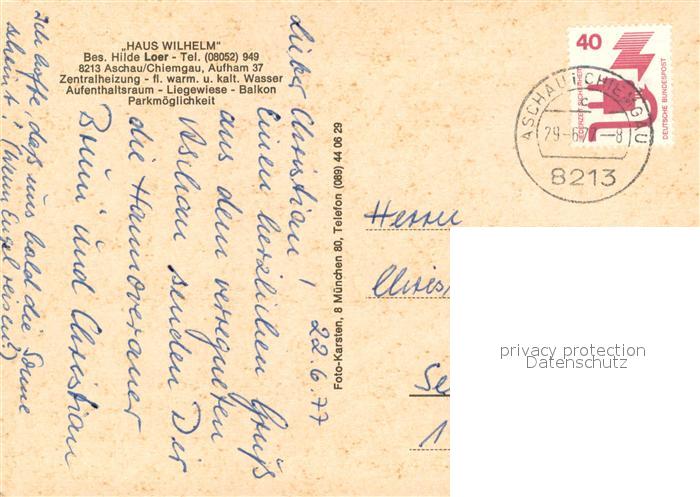 „HAUS WILHELM"
Bes. Hilde Loer - Tel. (08052) 949
8213 Aschau/Chiemgau, Aufham 37
Zentralheizung - fl. warm. u. kalt. Wasser
Aufenthaltsraum - Liegewiese - Balkon
Parkmöglichkeit
22.6.77
Lieber Christian!
Einen herzlichen Gruß
aus dem verregneten
Aschau senden Dir
die Hannoveraner
und Christian
Ich hoffe, daß uns bald die Sonne
scheint! (Wenn Engel reisen?)
Foto-Karsten, 8 München 80, Telefon (089) 44 06 29
40
JEDERZEIT SICHERHEIT
DEUTSCHE BUNDESPOST
ASCHAU i CHIEMGAU
c
-8
8213
Herrn
privacy protection
Datenschutz